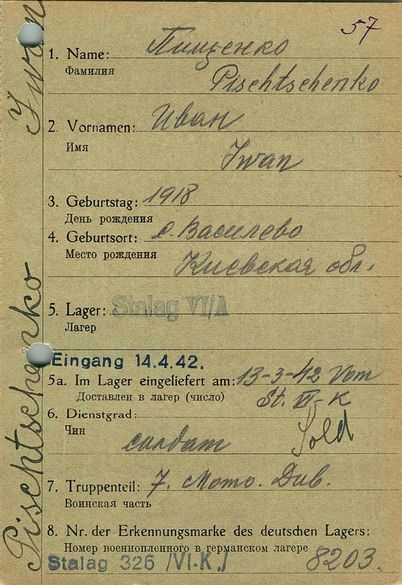 57
1. Name: Пищенко
Фамилия
Pischtschenko
2. Vornamen: Иван
Имя
Iwan
3. Geburtstag: 1918
День рождения
4. Geburtsort: с. Василево
Место рождения
Киевская обл.
5. Lager: Stalag VI/A
Лагерь
Eingang 14.4.42.
5a. Im Lager eingeliefert am: 13-3-42 Vom
Доставлен в лагерь (число)
St. VI-K
6. Dienstgrad:
Чин
солдат
Sold
7. Truppenteil: 7. Мото. Див.
Воинская часть
8. Nr. der Erkennungsmarke des deutschen Lagers:
Номер военнопленного в германском лагере
Stalag 326 /VI.K./ 8203.
Pischtschenko Iwan